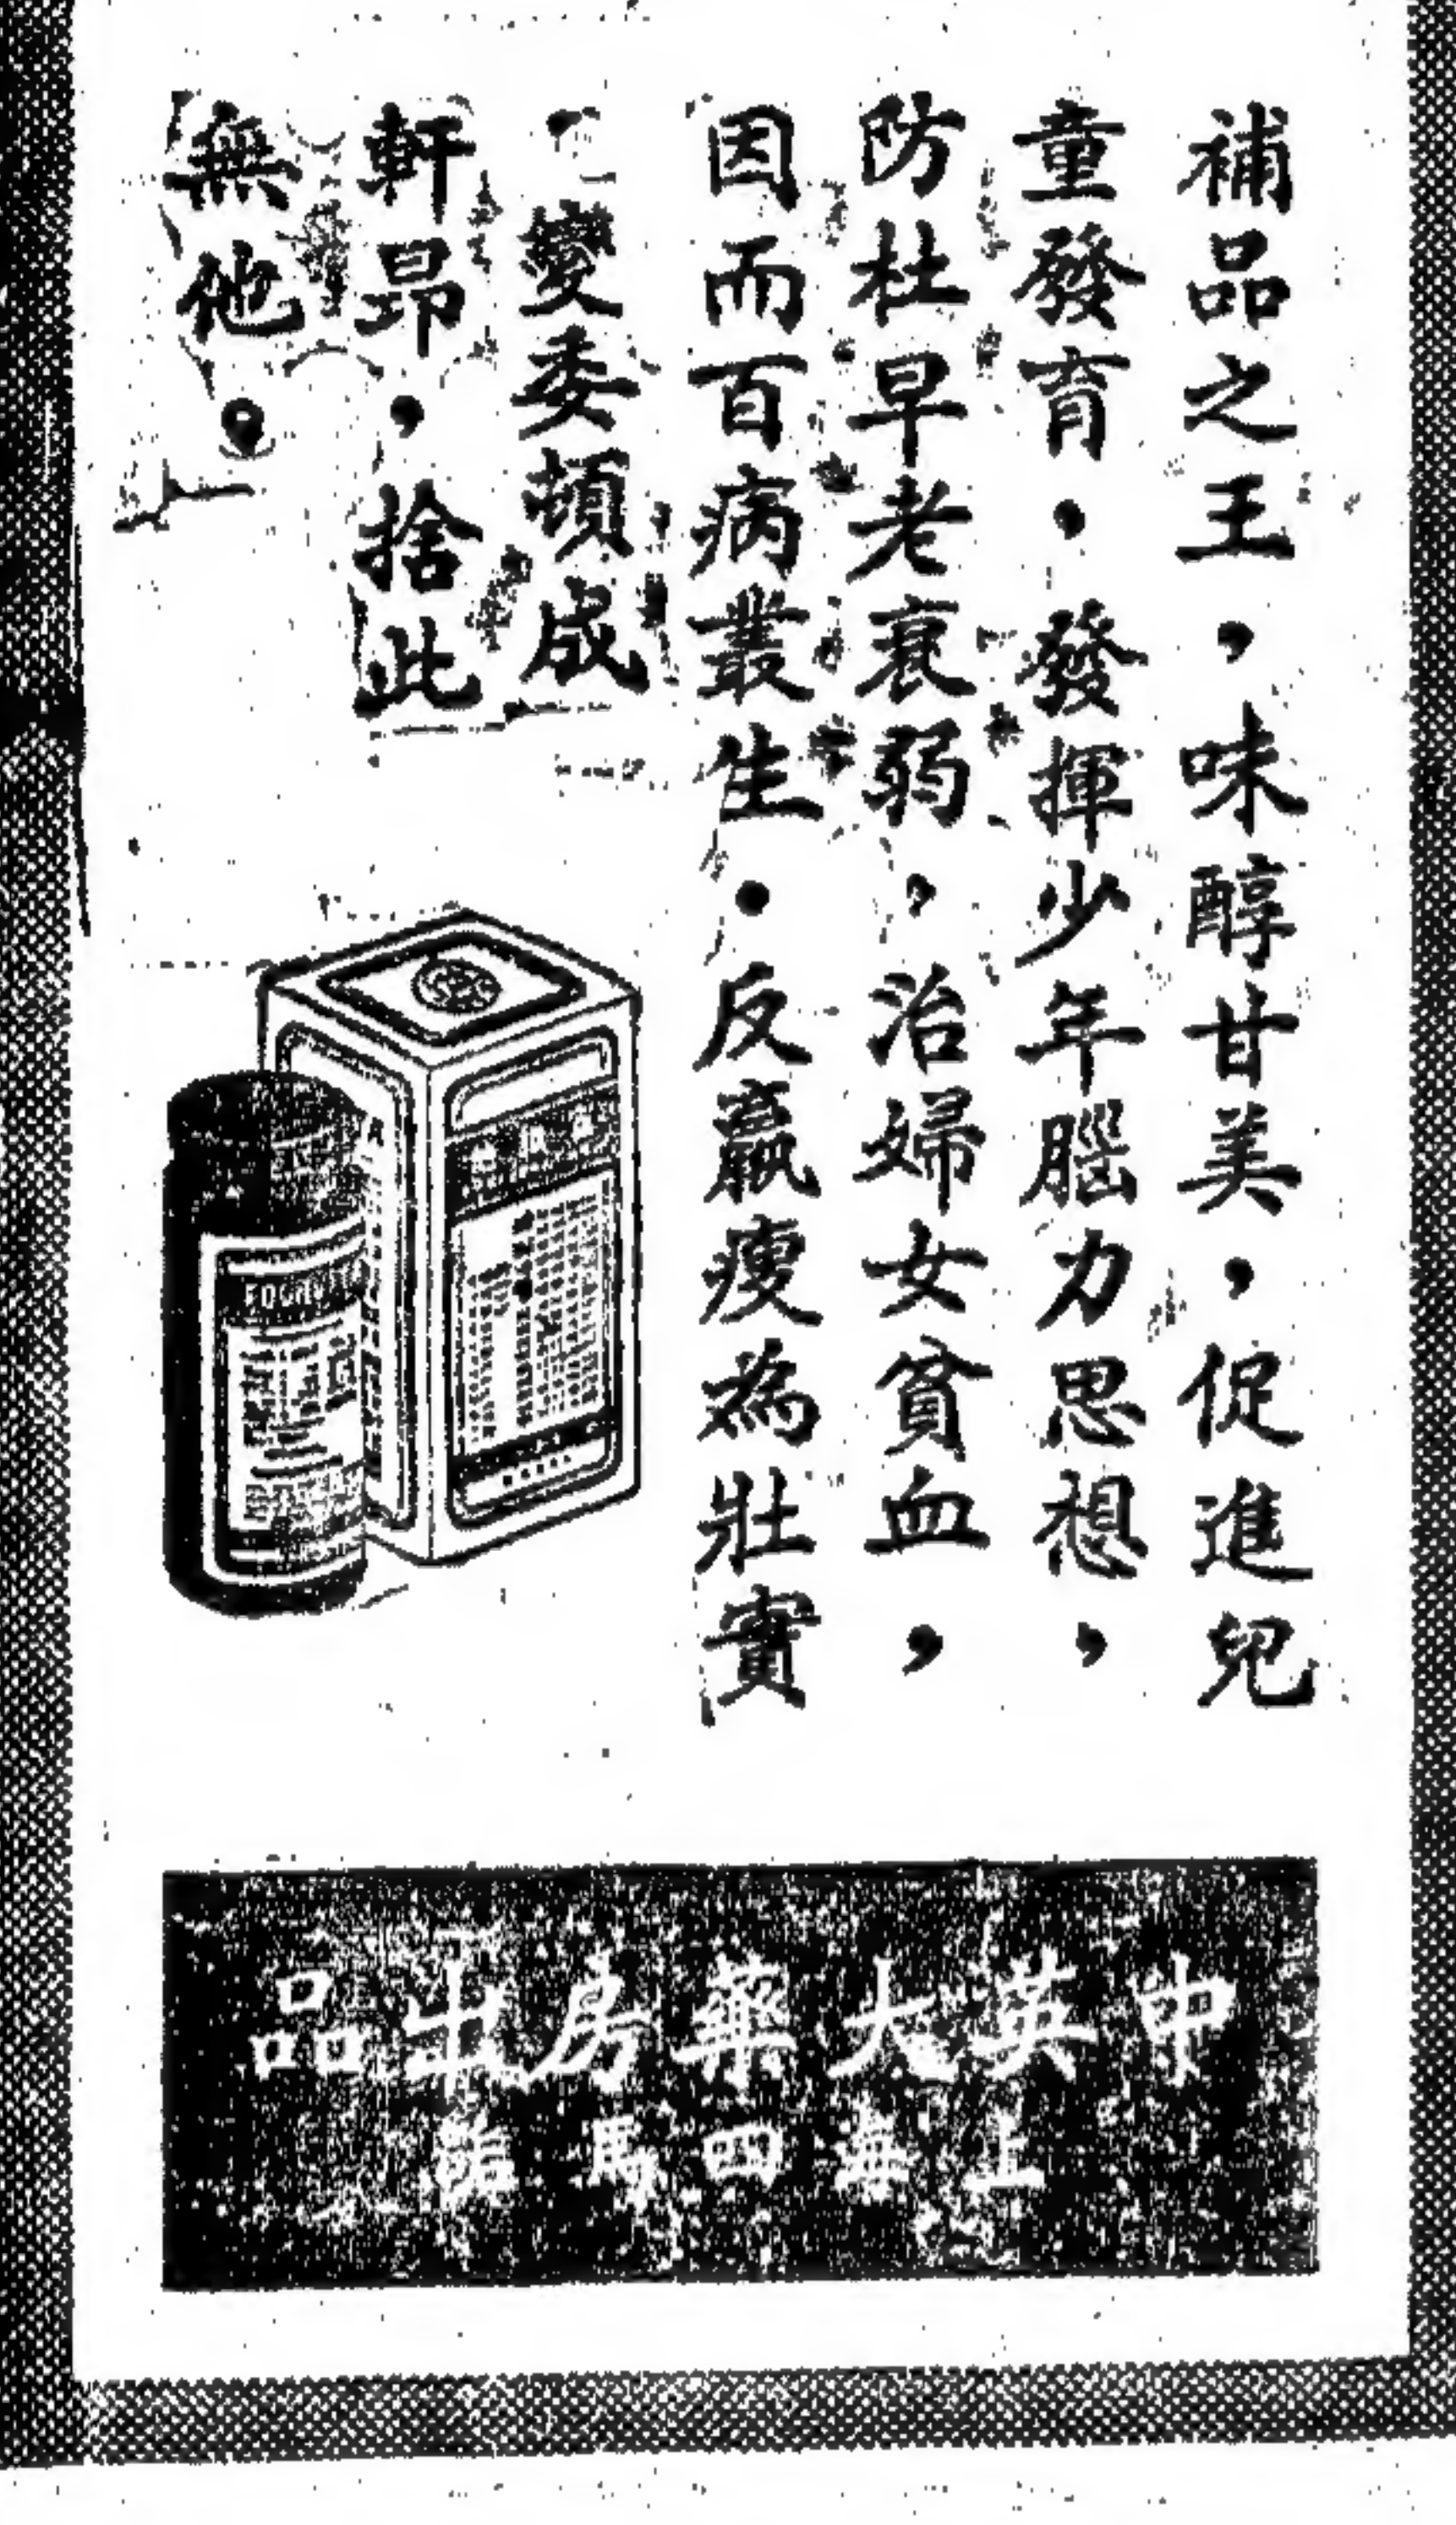 補品之王，味醇甘美，促進兒
童發育·發揮少年腦力思想，
防杜早老衰弱，治婦女貧血，
因而百病叢生·反羸瘦為壯實
·變委頓成
軒昂·捨此
無他。
中英大藥房出品
上海四馬路